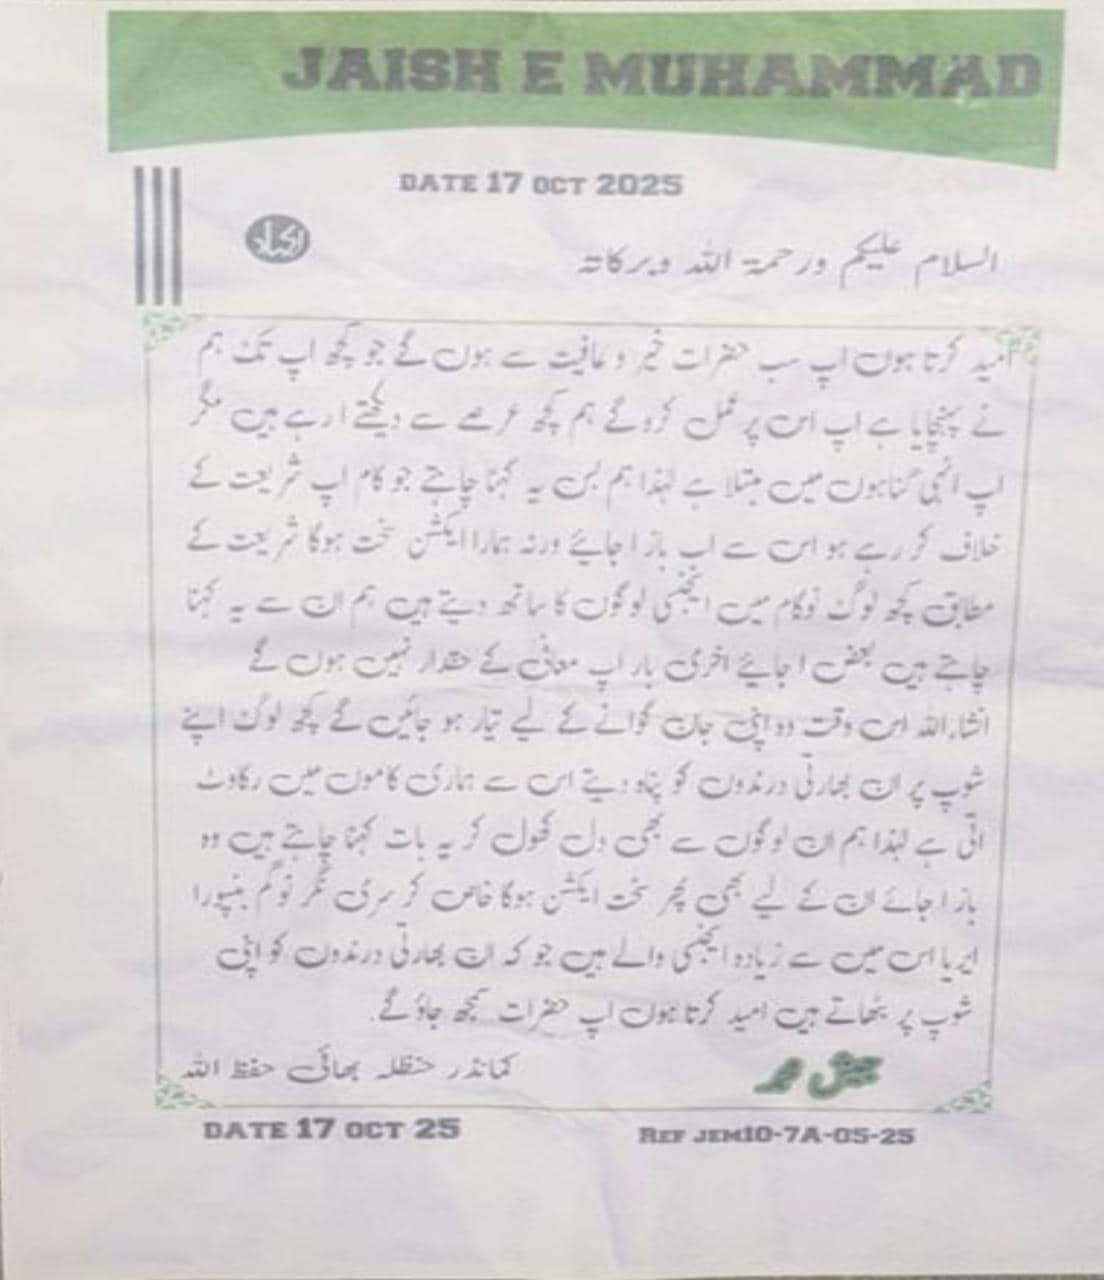 JAISH E MUHAMMAD
DATE 17 OCT 2025
السلام علیکم ورحمۃ اللہ وبرکاتہ
امید کرتا ہوں اپ سب حضرات خیر و عافیت سے ہوں گے جو کچھ اپ تک ہم
نے پہنچایا ہے اپ اس پر عمل کروگے ہم کچھ عرصے سے دیکھتے ارہے ہیں مگر
اپ انہی گناہوں میں مبتلا ہے لہذا ہم بس یہ کہنا چاہتے جو کام اپ شریعت کے
خلاف کر رہے ہو اس سے اب باز ا جائے ورنہ ہمارا ایکشن سخت ہوگا شریعت کے
مطابق کچھ لوگ نوگام میں ایجنسی لوگوں کا ساتھ دیتے ہیں ہم ان سے یہ کہنا
چاہتے ہیں بعض ا جائیے اخری بار اپ معافی کے حقدار نہیں ہوں گے
انشاءاللہ اس وقت وہ اپنی جان گوانے کے لیے تیار ہو جائیں گے کچھ لوگ اپنے
شوپ پر ان بھارتی درندوں کو پناہ دیتے اس سے ہماری کاموں میں رکاوٹ
اتی ہے لہذا ہم ان لوگوں سے بھی دل کھول کر یہ بات کہنا چاہتے ہیں وہ
باز ا جائے ان کے لیے بھی پھر سخت ایکشن ہوگا خاص کر سری نگر نوگم بنپورا
ایریا اس میں سے زیادہ ایجنسی والے ہیں جو کہ ان بھارتی درندوں کو اپنی
شوپ پر بٹھاتے ہیں امید کرتا ہوں اپ حضرات سمجھ جاؤگے.
جیش محمد
کمانڈر حنظلہ بھائی حفظ اللہ
DATE 17 OCT 25
REF JEM10-7A-05-25